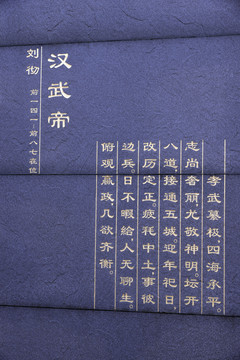 汉武帝
刘彻 前一四一-前八七在位
孝武纂极，四海承平。
志尚奢丽，尤敬神明。坛开
八道，接通五城。迎年祀日，
改历定正。疲耗中土，事彼
边兵。日不暇给，人无聊生。
俯观嬴政，几欲齐衡。